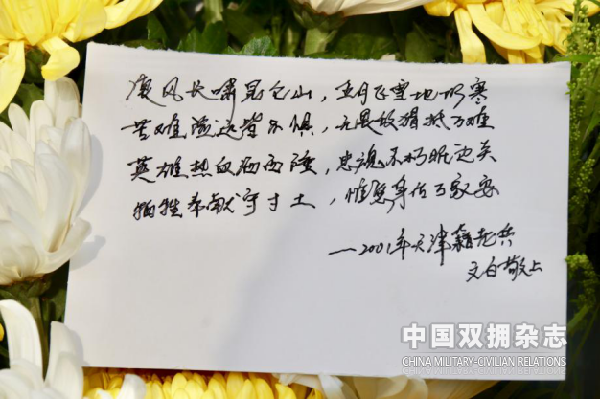 风长啸昆仑山，五月飞雪地仍寒
苦难险远皆不惧，无畏抵万难
英雄热血洒西陲，忠魂不朽眠边关
牺牲奉献守寸土，惟愿身万家安
—2001年天津籍老兵
文白敬上
中国双拥杂志
CHINA MILITARY-CIVILIAN RELATIONS